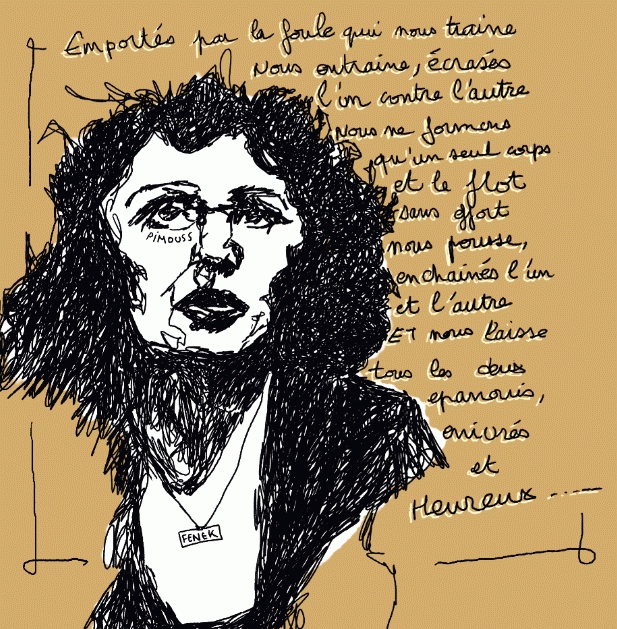 Emportés par la foule qui nous traine
nous entraine, écrasés
l'un contre l'autre
nous ne formons
qu'un seul corps
et le flot
sans effort
nous pousse,
enchainés l'un
et l'autre
ET nous laisse
tous les deux
epanouis,
enivrés
et
Heureux .....
PiMOUSS
FENEK